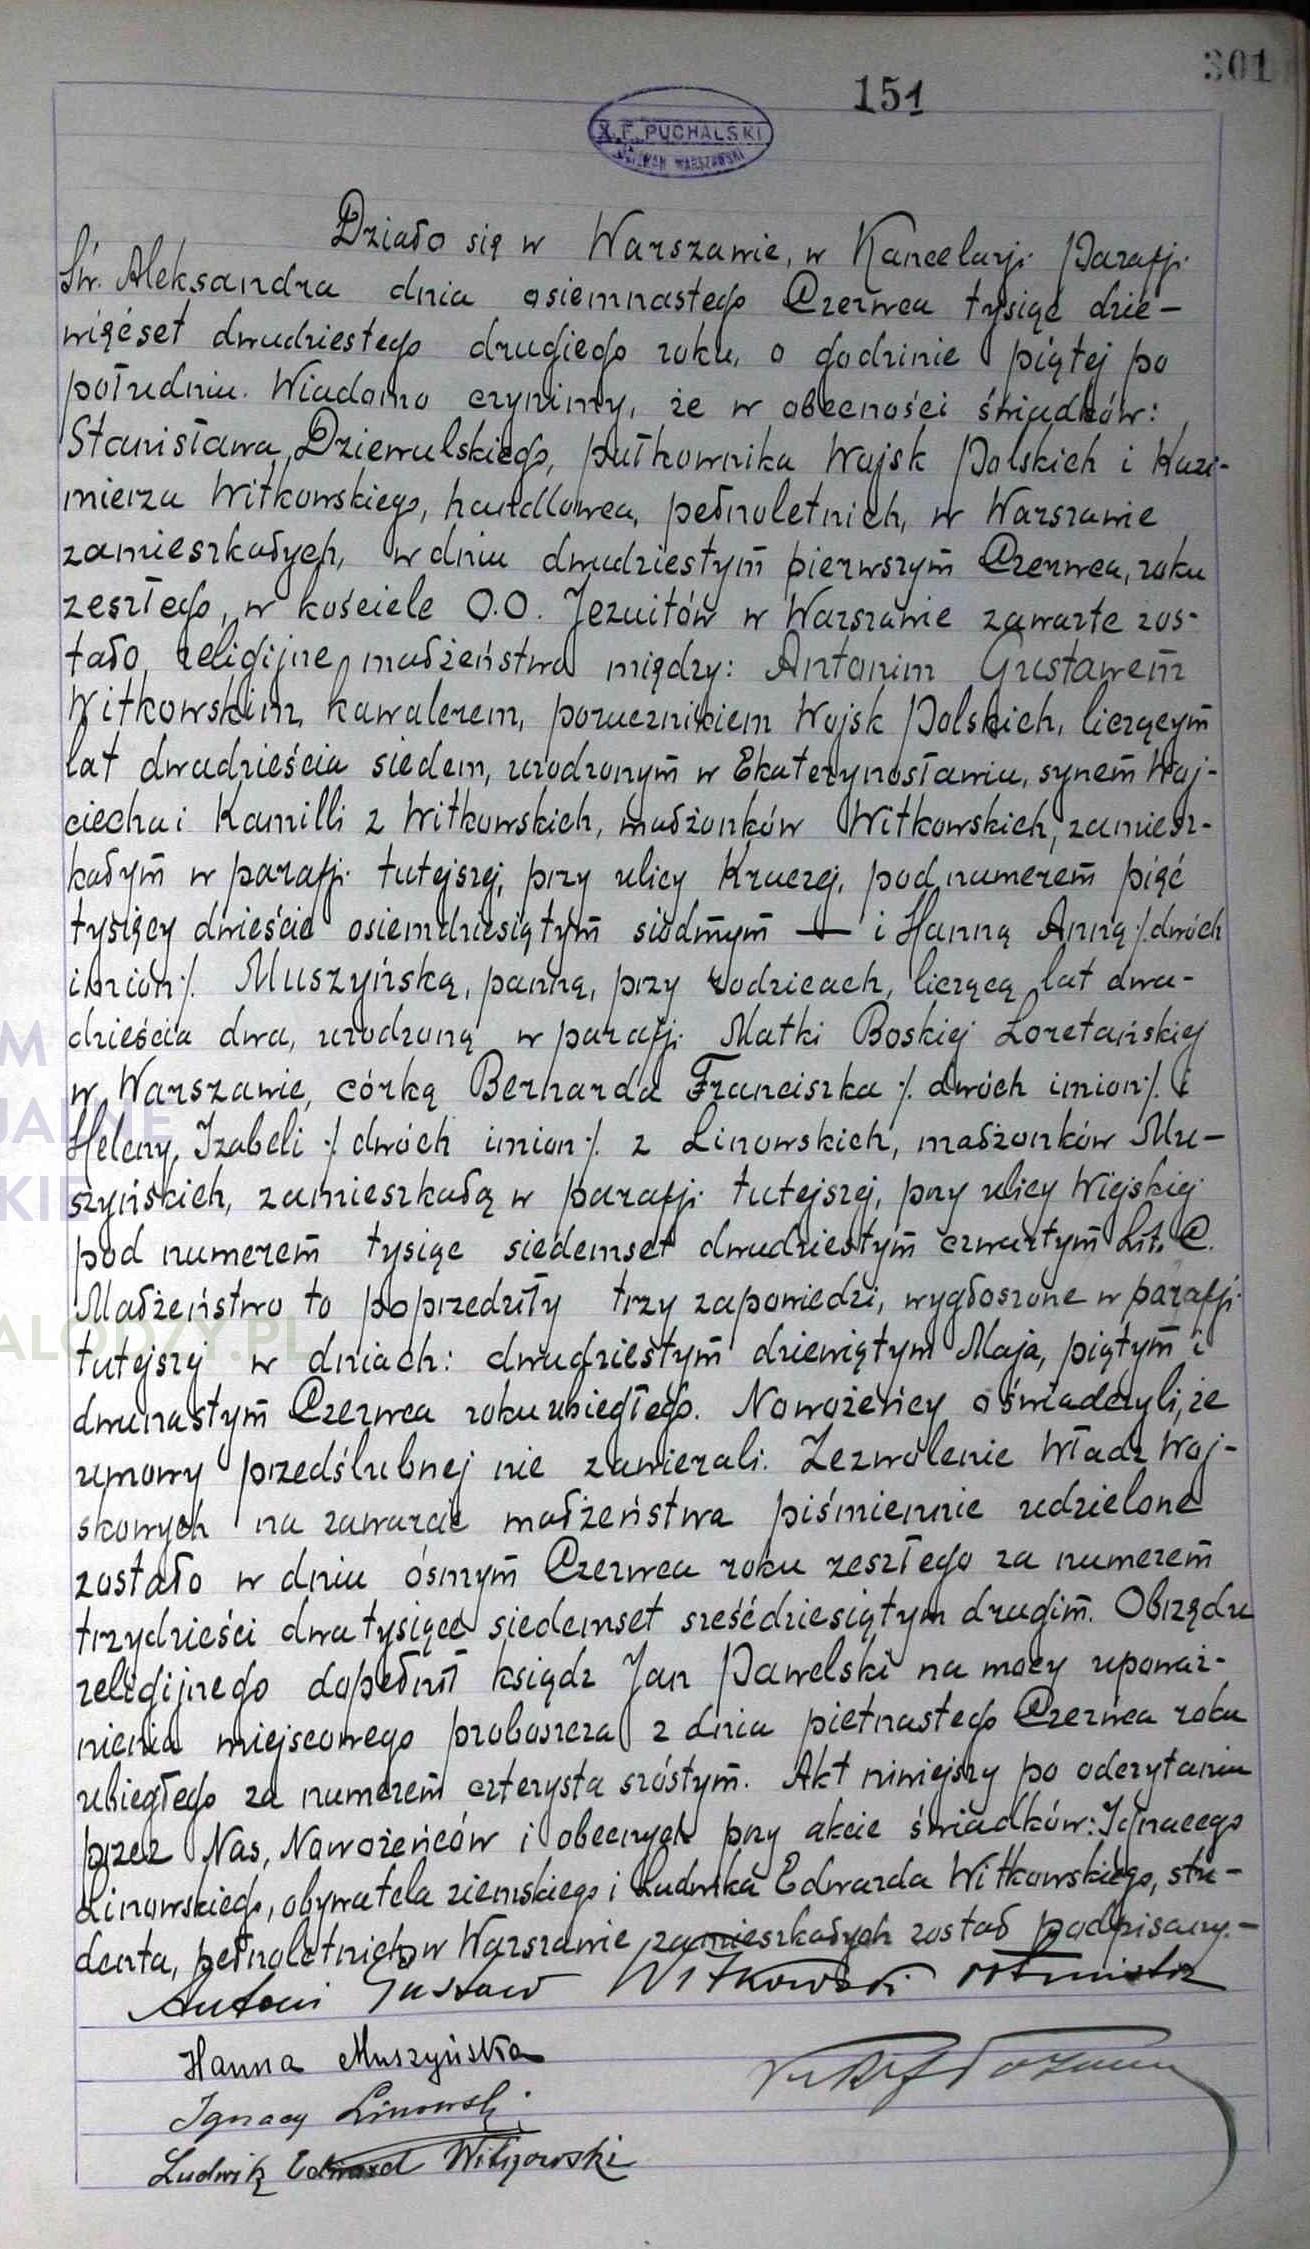 301
151
X. F. PUCHALSKI
DZIEKAN WARSZAWSKI
Działo się w Warszawie, w Kancelarji Parafji
Św. Aleksandra dnia osiemnastego Czerwca tysiąc dzie-
więćset dwudziestego drugiego roku, o godzinie piątej po
południu. Wiadomo czynimy, że w obecności świadków:
Stanisława Dziewulskiego, pułkownika Wojsk Polskich i Kazi-
mierza Witkowskiego, handlowca, pełnoletnich, w Warszawie
zamieszkałych, w dniu dwudziestym pierwszym Czerwca, roku
zeszłego, w kościele O.O. Jezuitów w Warszawie zawarte zos-
tało religijne małżeństwo między: Antonim Gustawem
Witkowskim, kawalerem, porucznikiem Wojsk Polskich, liczącym
lat dwadzieścia siedem, urodzonym w Ekaterynosławiu, synem Woj-
ciecha i Kamilli z Witkowskich, małżonków Witkowskich, zamiesz-
kałym w parafji tutejszej, przy ulicy Kruczej, pod numerem pięć
tysięcy dwieście osiemdziesiątym siódmym — i Hanną Anną /:dwóch
imion:/ Muszyńską, panną, przy rodzicach, liczącą lat dwa-
dzieścia dwa, urodzoną w parafji Matki Boskiej Loretańskiej
w Warszawie, córką Bernarda Franciszka /:dwóch imion:/ i
Heleny Izabeli /:dwóch imion:/ z Linowskich, małżonków Mu-
szyńskich, zamieszkałą w parafji tutejszej, przy ulicy Wiejskiej
pod numerem tysiąc siedemset dwudziestym czwartym Lit. C.
Małżeństwo to poprzedziły trzy zapowiedzi, wygłoszone w parafji
tutejszej w dniach: dwudziestym dziewiątym Maja, piątym i
dwunastym Czerwca roku ubiegłego. Nowożeńcy oświadczyli, że
umowy przedślubnej nie zawierali. Zezwolenie Władz Woj-
skowych na zawarcie małżeństwa piśmiennie udzielone
zostało w dniu ósmym Czerwca roku zeszłego za numerem
trzydzieści dwa tysiące siedemset sześćdziesiątym drugim. Obrzędu
religijnego dopełnił ksiądz Jan Pawelski na mocy upoważ-
nienia miejscowego proboszcza z dnia piętnastego Czerwca roku
ubiegłego za numerem czterysta szóstym. Akt niniejszy po odczytaniu
przez Nas, Nowożeńców i obecnych przy akcie świadków: Ignacego
Linowskiego, obywatela ziemskiego i Ludwika Edwarda Witkowskiego, stu-
denta, pełnoletnich w Warszawie zamieszkałych został podpisany.-
Antoni Gustaw Witkowski rotmistrz
Hanna Muszyńska
Ignacy Linowski
Ludwik Edward Witkowski